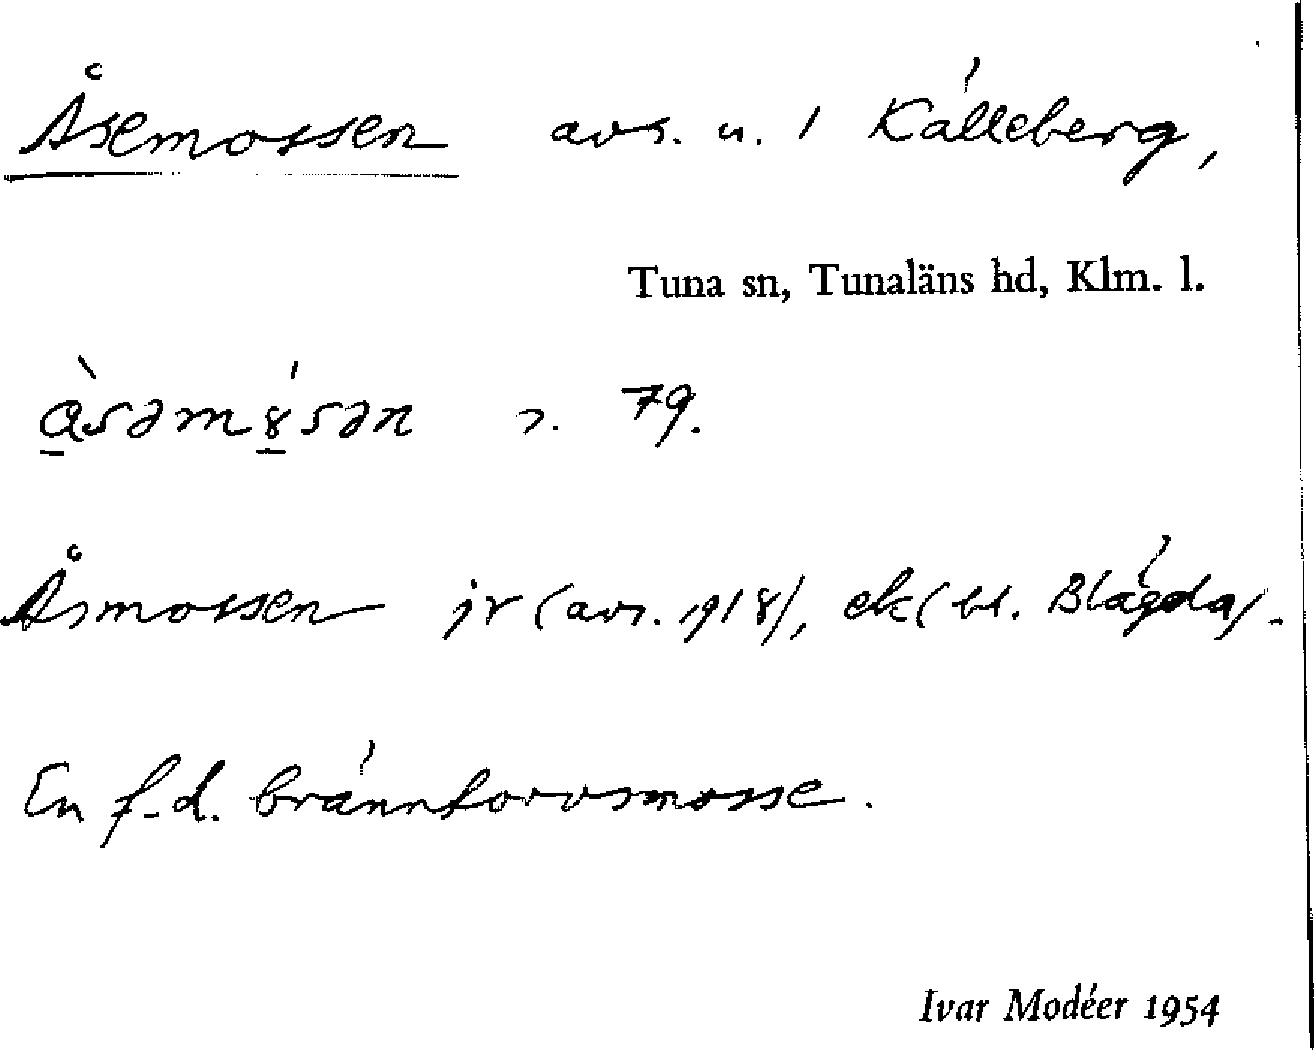 Åsemossen avs. u. 1 Källeberg,
Tuna sn, Tunaläns hd, Klm. l.
79.
Åsmossen jr (avs. 1918), ek (bl. Blägda).
En f.d. bränntorvsmosse.
Ivar Modéer 1954